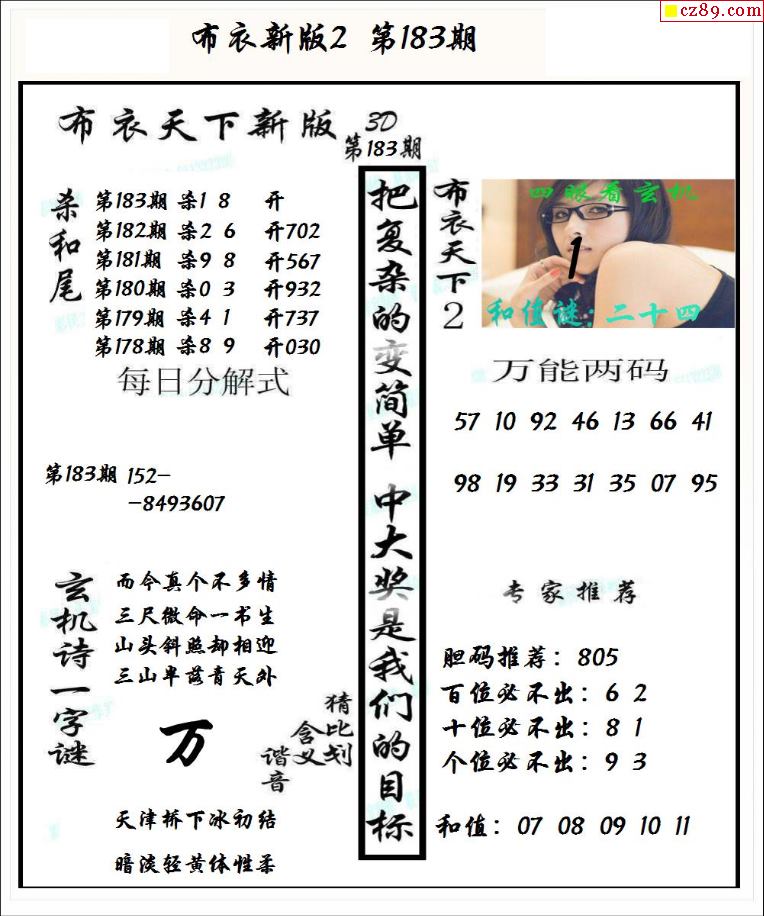 cz89.com
布衣新版2 第183期
布衣天下新版 3D
第183期
杀和尾
第183期 杀1 8 开
第182期 杀2 6 开702
第181期 杀9 8 开567
第180期 杀0 3 开932
第179期 杀4 1 开737
第178期 杀8 9 开030
每日分解式
第183期 152-
-8493607
玄机诗一字谜
而今真个不多情
三尺微命一书生
山头斜照却相迎
三山半落青天外
万
猜比划
含义
谐音
天津桥下冰初结
暗淡轻黄体性柔
把复杂的变简单 中大奖是我们的目标
布衣天下2
四眼看玄机
1
和值谜:二十四
万能两码
57 10 92 46 13 66 41
98 19 33 31 35 07 95
专家推荐
胆码推荐：805
百位必不出：6 2
十位必不出：8 1
个位必不出：9 3
和值：07 08 09 10 11